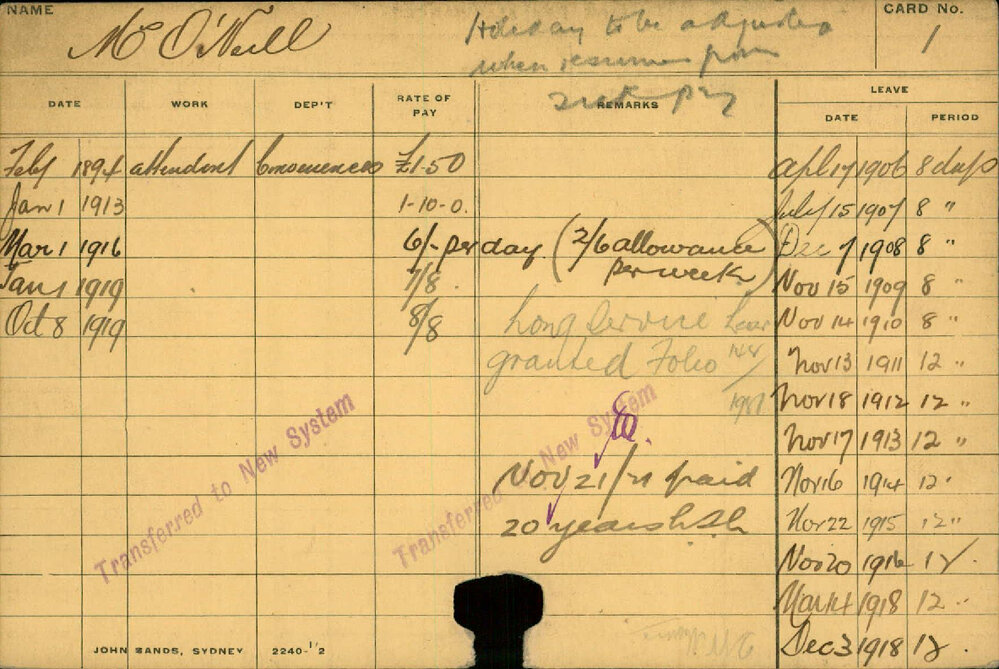 NAME
Mc O'Neill
Holiday to be adjusted
when resumes from
sick pay
CARD No.
1
DATE WORK DEP'T RATE OF PAY REMARKS
LEAVE
DATE PERIOD
Feby 1894 attendant Commenced £1-50
Jan 1 1913 1-10-0.
Mar 1 1916 6/- per day (2/6 allowance
per week)
Jan 1 1919 7/8.
Oct 8 1919 8/8
Long Service Leave
granted Folio 144/
Nov 21/21 paid
20 years
Transferred to New System
Transferred to New System
Apl 17 1906 8 days
July 15 1907 8 "
Dec 7 1908 8 "
Nov 15 1909 8 "
Nov 14 1910 8 "
Nov 13 1911 12 "
Nov 18 1912 12 "
Nov 17 1913 12 "
Nov 16 1914 12 "
Nov 22 1915 12 "
Nov 20 1916 12
Mar 14 1918 12 "
Dec 3 1918 12
JOHN SANDS, SYDNEY 2240-1/2